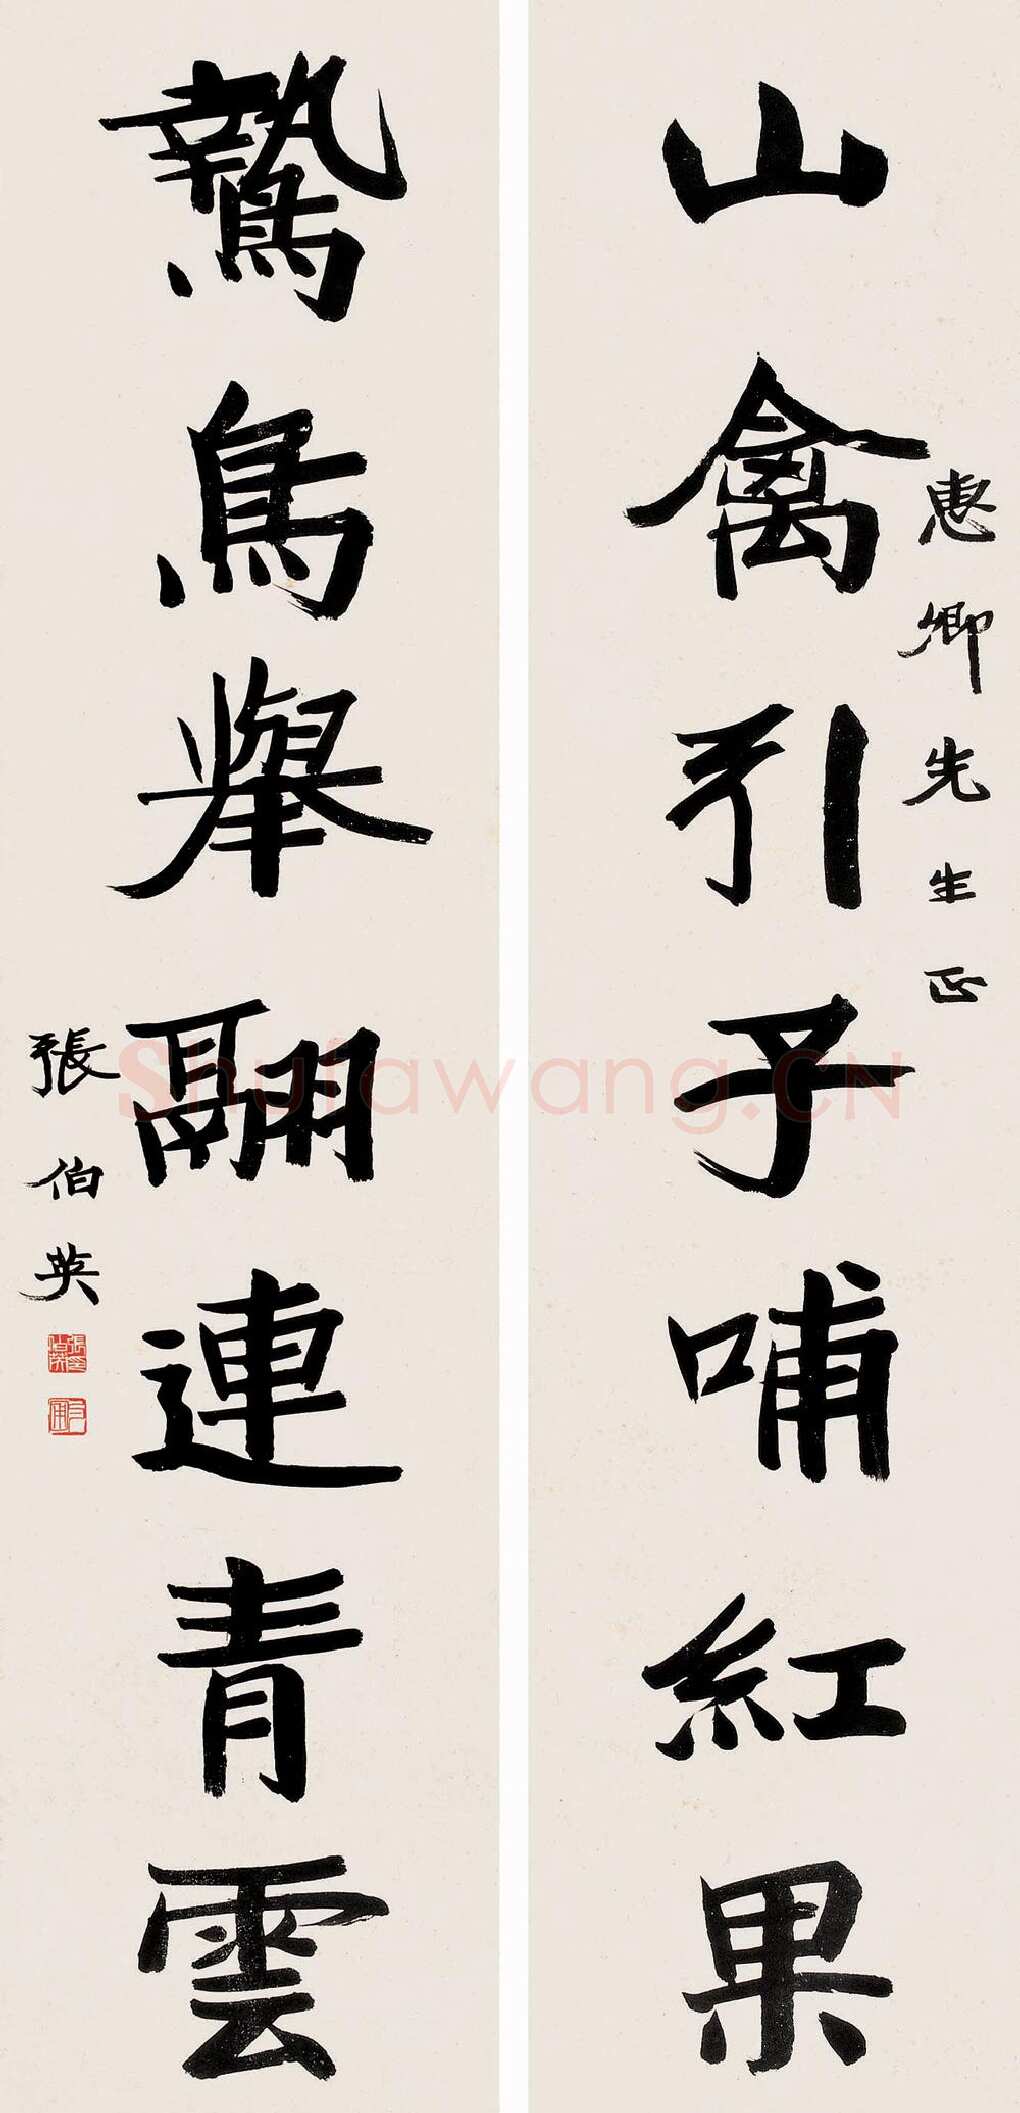 山禽引子哺紅果
惠卿先生正
鷙鳥舉翮連青雲
張伯英
Shufawang.CN